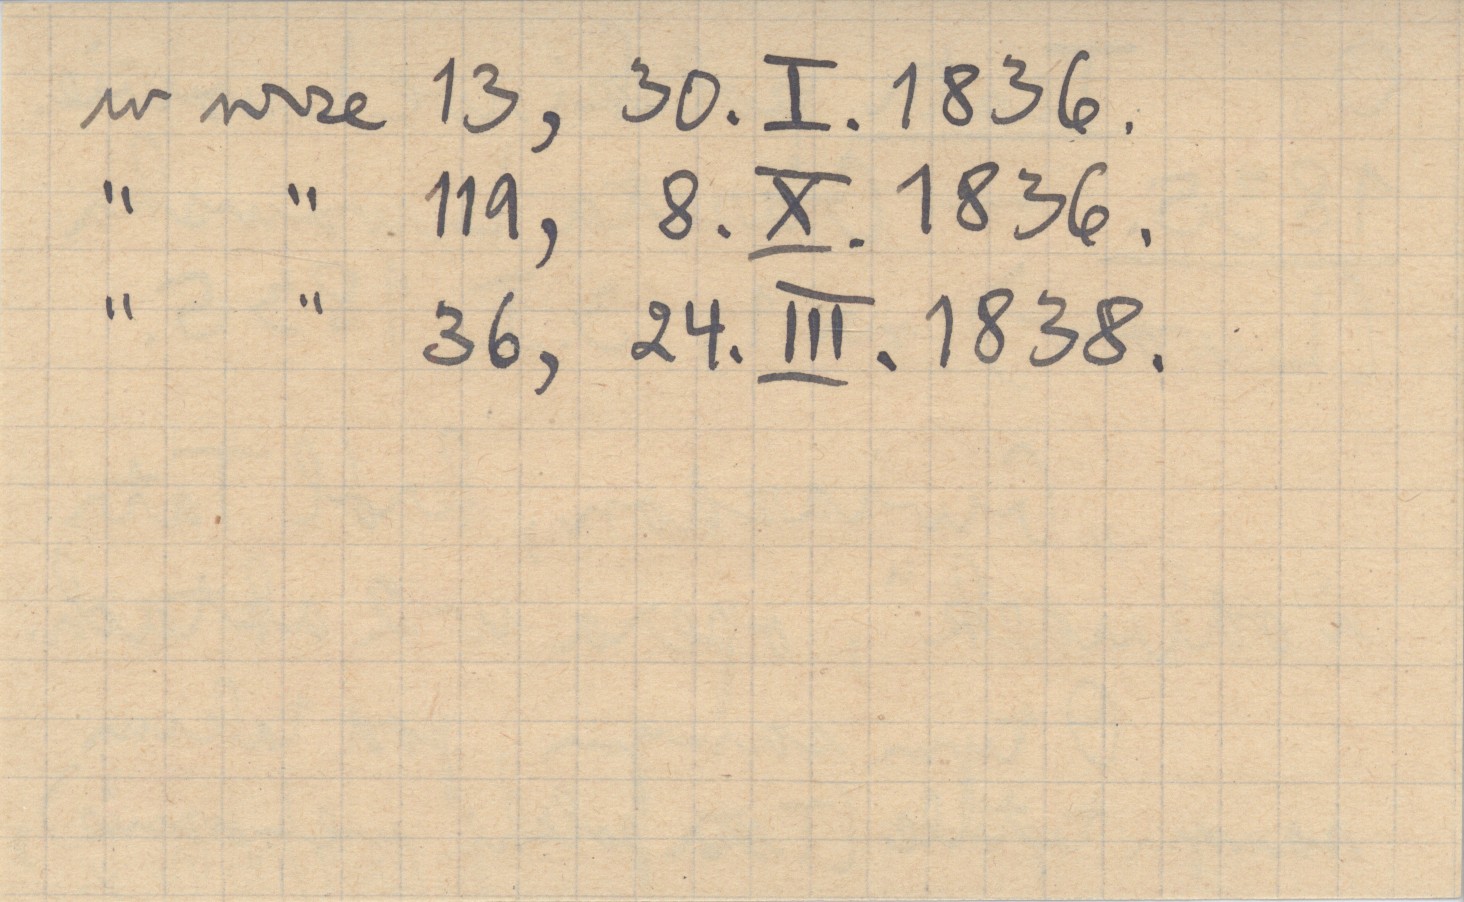 w nrze 13, 30. I. 1836.
" " 119, 8. X. 1836.
" " 36, 24. III. 1838.